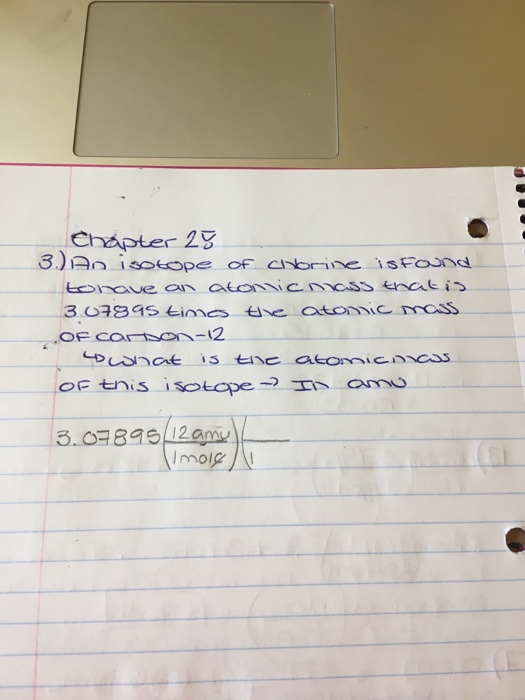 Chapter 28
3.) An isotope of chlorine is found
to have an atomic mass that is
3.07895 times the atomic mass
of carbon-12
↳ what is the atomic mass
of this isotope → In amu
3.07895 (12 amu / 1 mole) ( / 1